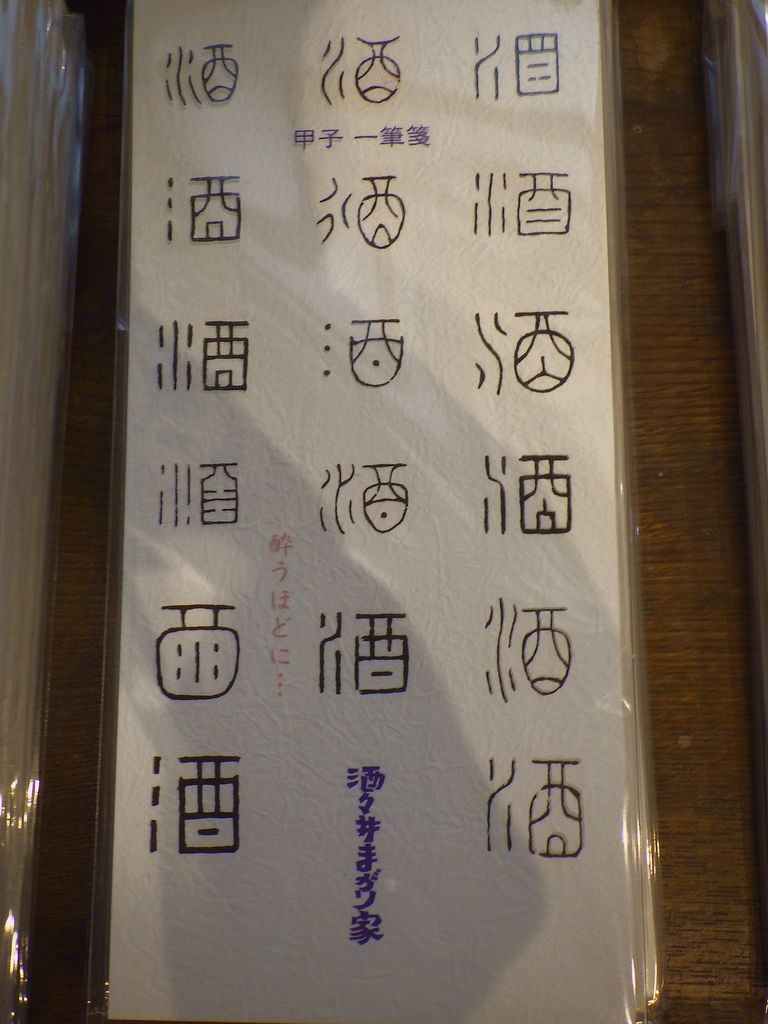 酒 酒 酒
甲子 一筆箋
酒 酒 酒
酒 酒 酒
酒 酒 酒
酔うほどに…
酒 酒 酒
酒 酒
酒々井まがり家